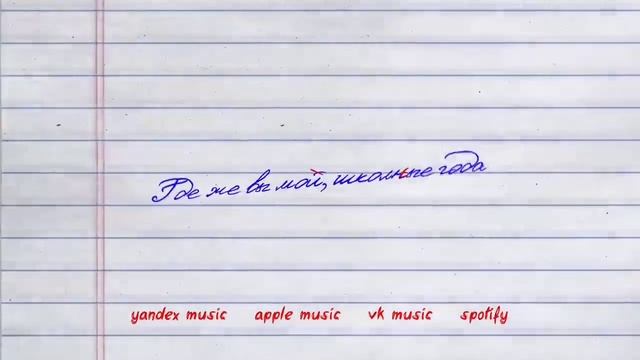 Где же вы мой, школные года
yandex music apple music vk music spotify